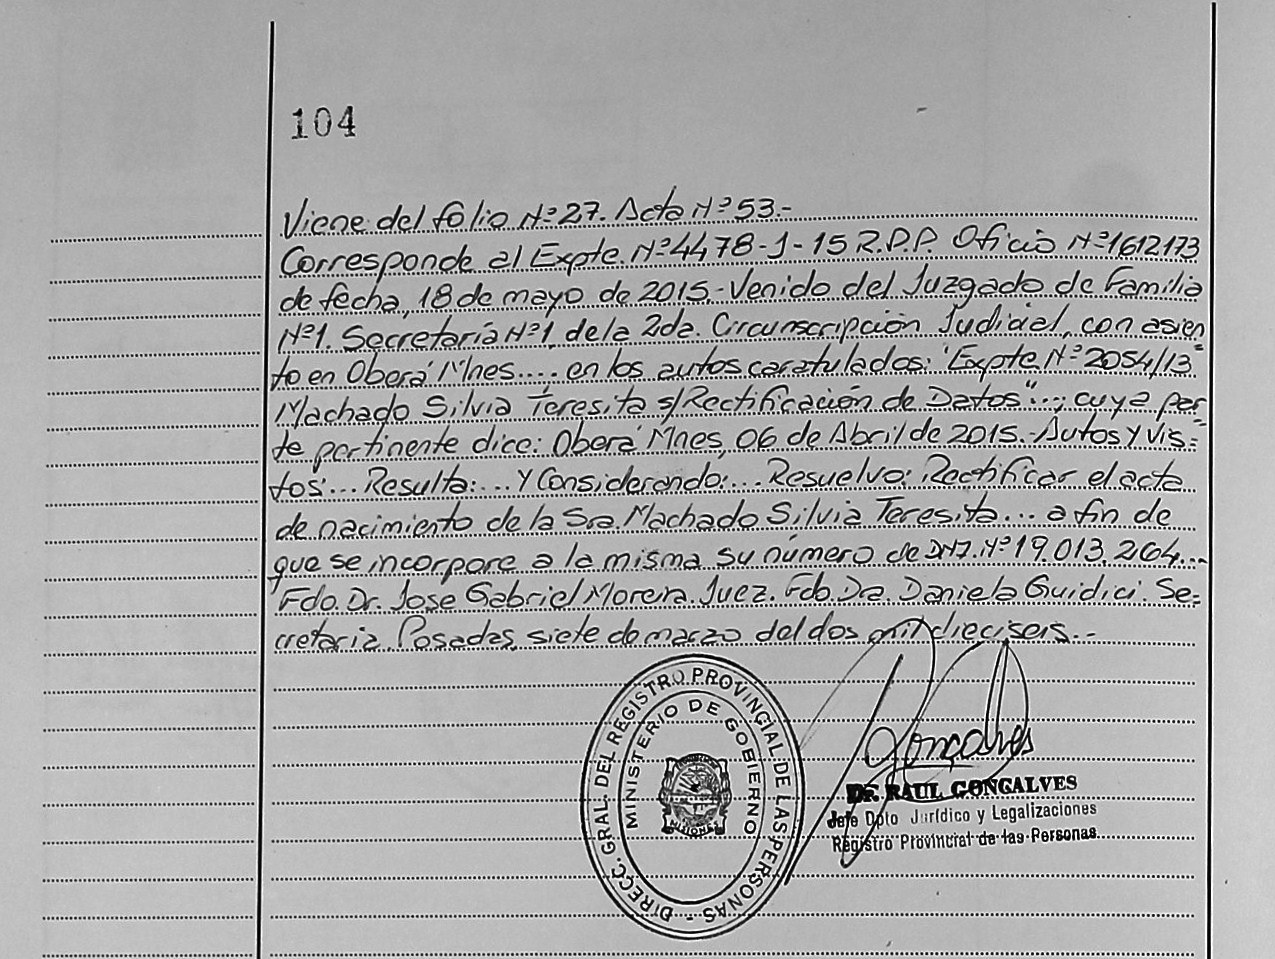 104
Viene del folio Nº 27. Acta Nº 53.-
Corresponde al Expte. Nº 4478-J-15 R.P.P. Oficio Nº 1612173
de fecha, 18 de mayo de 2015.- Venido del Juzgado de Familia
Nº1. Secretaría Nº1, de la 2da. Circunscripción Judicial, con asien
to en Oberá Mnes.... en los autos caratulados: "Expte Nº 2054/13"
Machado Silvia Teresita s/Rectificación de Datos"..., cuya par-
te pertinente dice: Oberá Mnes, 06 de Abril de 2015.- Autos y Vis-
tos:... Resulta:... Y Considerando:... Resuelvo: Rectificar el acta
de nacimiento de la Sra. Machado Silvia Teresita... a fin de
que se incorpore a la misma su número de DNI. Nº 19.013.264...-
Fdo. Dr. Jose Gabriel Moreira. Juez. Fdo. Dra. Daniela Guidici. Se-
cretaria. Posadas, siete de marzo del dos mil dieciseis.--
DIRECC. GRAL. DEL REGISTRO PROVINCIAL DE LAS PERSONAS -
MINISTERIO DE GOBIERNO
MISIONES
Goncalves
Dr. RAUL GONCALVES
Jefe Dpto Jurídico y Legalizaciones
Registro Provincial de las Personas